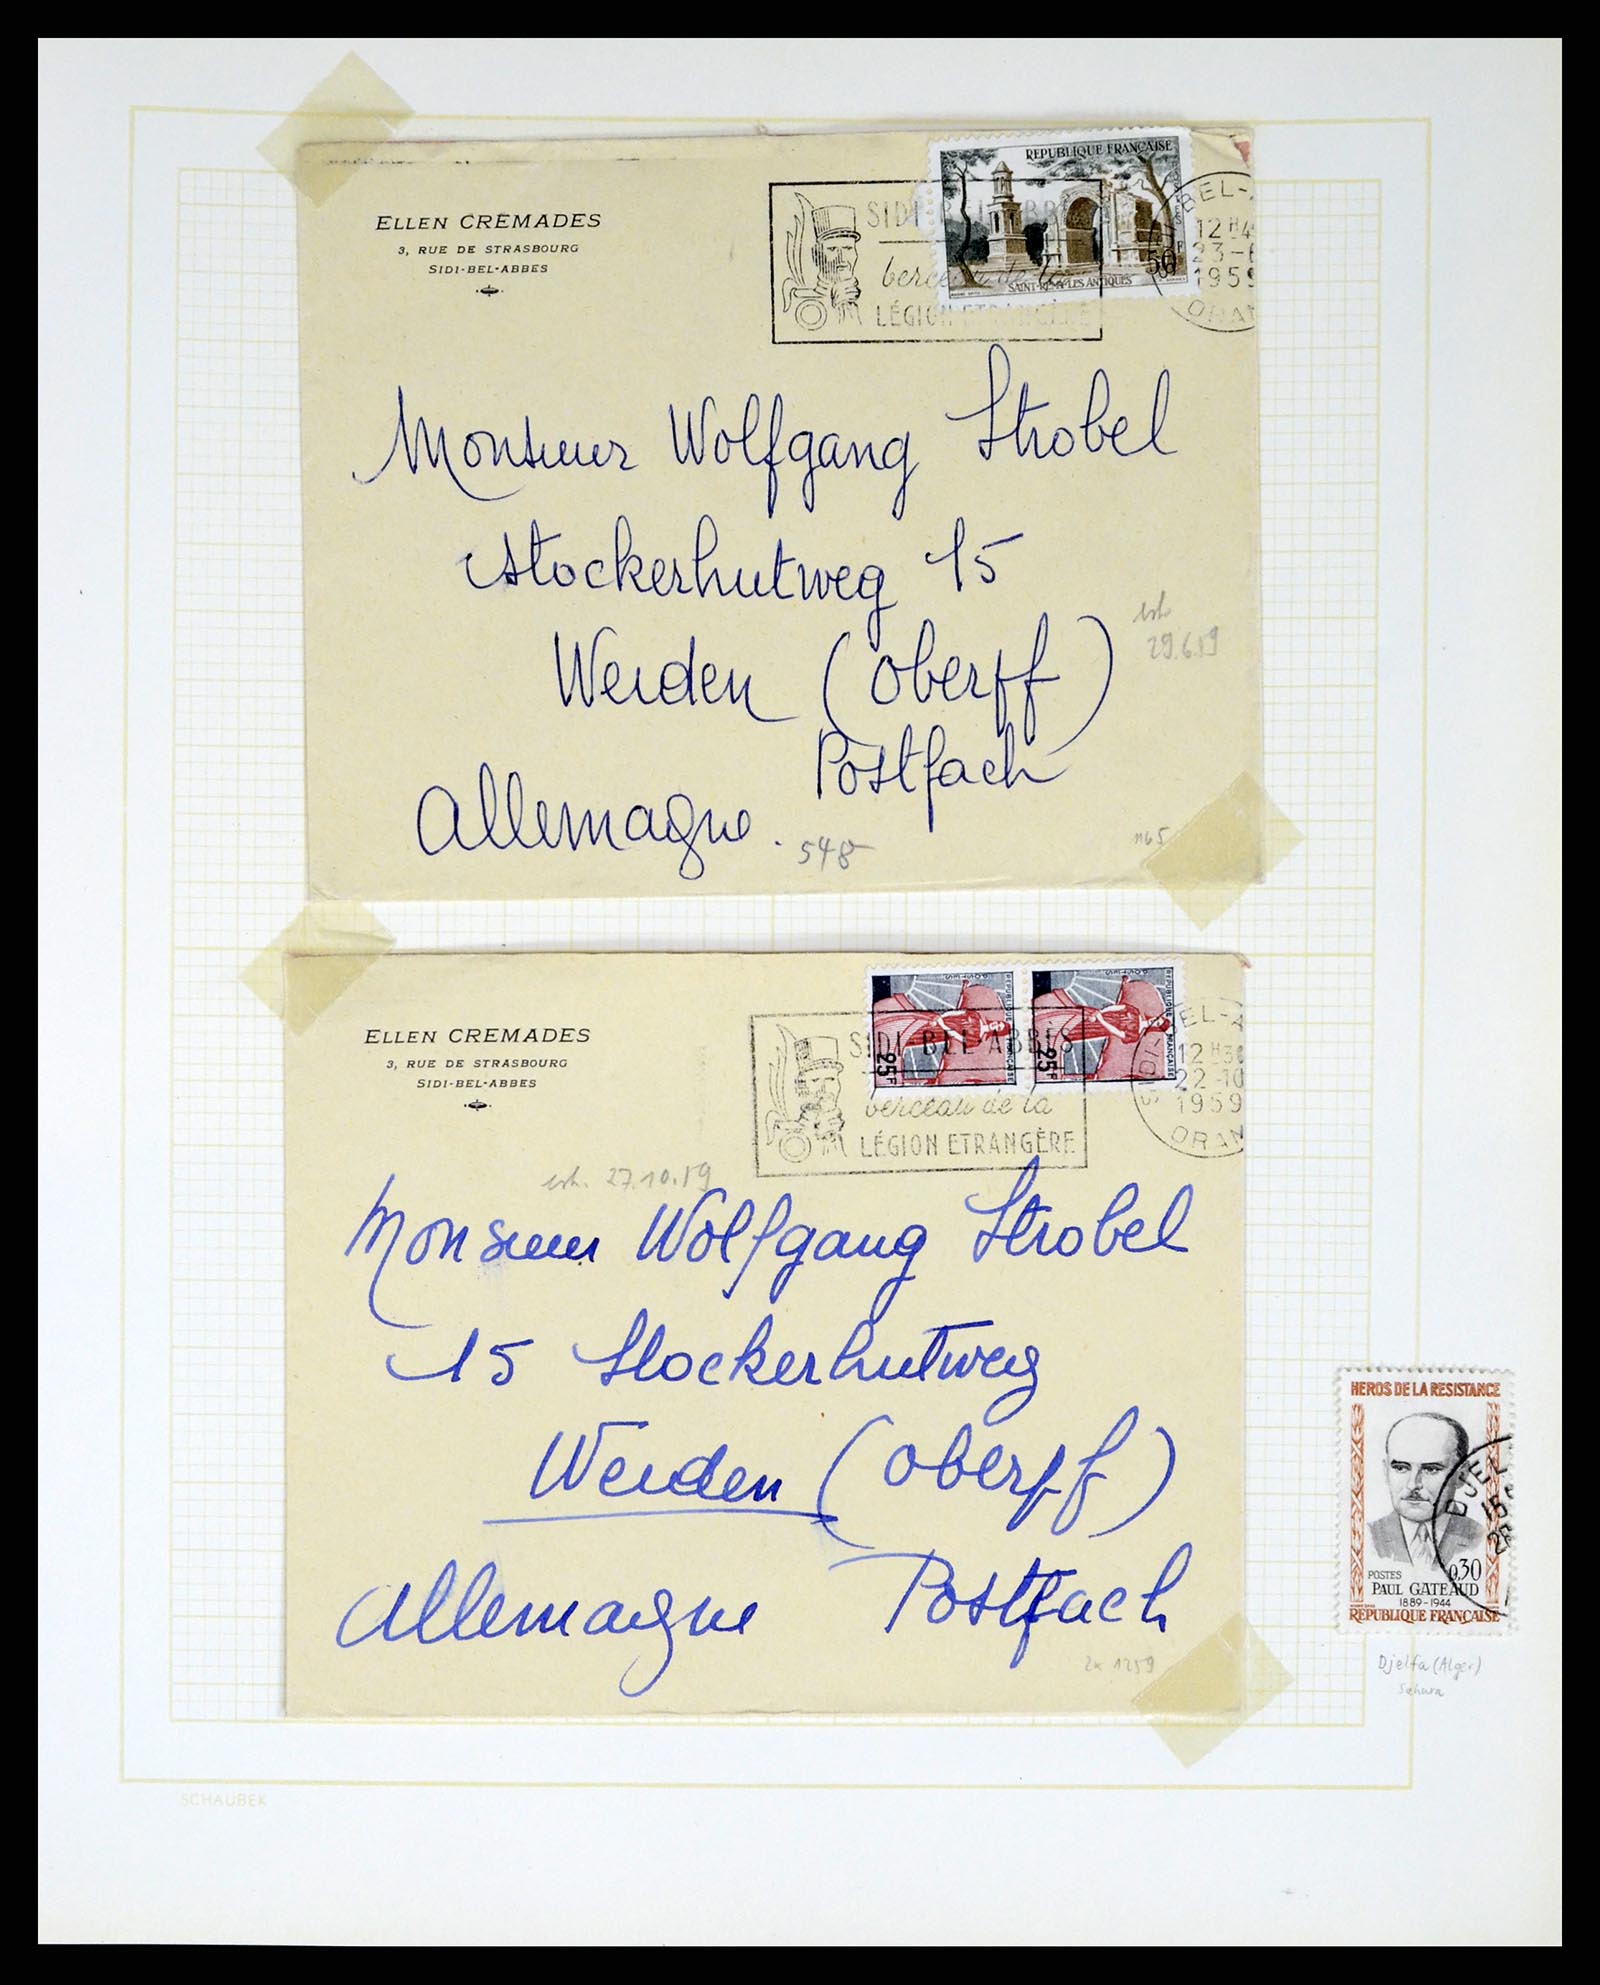 ELLEN CREMADES
3, RUE DE STRASBOURG
SIDI-BEL-ABBES
REPUBLIQUE FRANÇAISE
50F
SAINT-REMY LES ANTIQUES
SIDI BEL ABBÈS
berceau de la
LÉGION ETRANGÈRE
BEL-A
12 H4
23-6
1959
ORAN
Monsieur Wolfgang Strobel
Stockerhutweg 15
Weiden (Oberpf)
Postfach
Allemagne.
29.6.59
548
1165
ELLEN CREMADES
3, RUE DE STRASBOURG
SIDI-BEL-ABBES
REPUBLIQUE FRANÇAISE
25F
REPUBLIQUE FRANÇAISE
25F
SIDI BEL ABBÈS
berceau de la
LÉGION ETRANGÈRE
SIDI-BEL-A
12 H30
22-10
1959
ORAN
27.10.59
Monsieur Wolfgang Strobel
15 Stockerhutweg
Weiden (Oberpf)
Allemagne Postfach
2x 1259
HEROS DE LA RESISTANCE
DJEL
15
28
POSTES 0,30
PAUL GATEAUD
1889-1944
REPUBLIQUE FRANÇAISE
Djelfa (Alger)
Sahara
SCHAUBEK